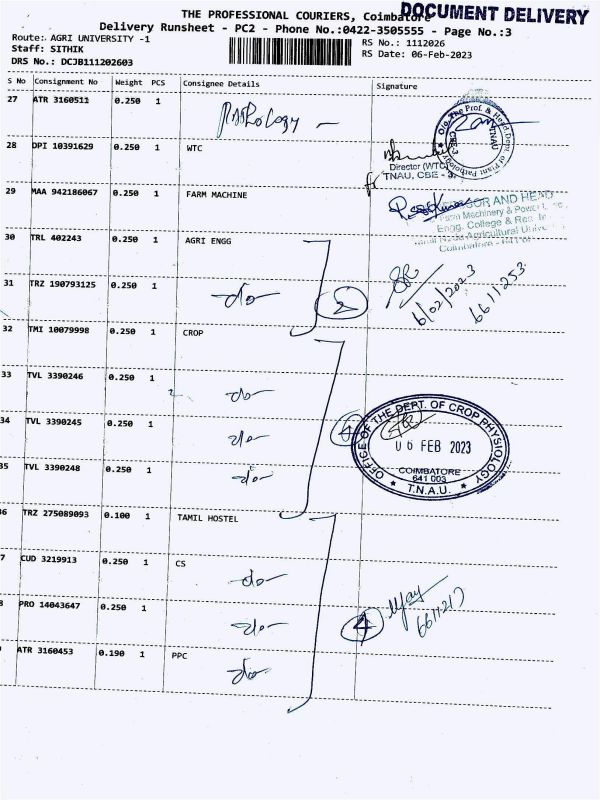 THE PROFESSIONAL COURIERS, Coimbatore
DOCUMENT DELIVERY
Delivery Runsheet - PC2 - Phone No.:0422-3505555 - Page No.:3
Route: AGRI UNIVERSITY -1
RS No.: 1112026
Staff: SITHIK
RS Date: 06-Feb-2023
DRS No.: DCJB111202603
S No Consignment No Weight PCS Consignee Details Signature
27 ATR 3160511 0.250 1 Pathology
O/o The Prof. & Head Dept. of Plant Pathology
TNAU CBE-3
28 DPI 10391629 0.250 1 WTC
Director (WTC)
TNAU, CBE - 3
29 MAA 942186067 0.250 1 FARM MACHINE
PROFESSOR AND HEAD
Farm Machinery & Power
Engg. College & Res. In
Agricultural
Coimbatore
30 TRL 402243 0.250 1 AGRI ENGG
31 TRZ 190793125 0.250 1 do
2
6/02/2023
6611253
32 TMI 10079998 0.250 1 CROP
33 TVL 3390246 0.250 1 do
34 TVL 3390245 0.250 1 do
4
OFFICE OF THE DEPT. OF CROP PHYSIOLOGY
06 FEB 2023
COIMBATORE
641 003
T.N.A.U.
35 TVL 3390248 0.250 1 do
36 TRZ 275089093 0.100 1 TAMIL HOSTEL
7 CUD 3219913 0.250 1 CS
do
8 PRO 14043647 0.250 1 do
4
ATR 3160453 0.190 1 PPC
do